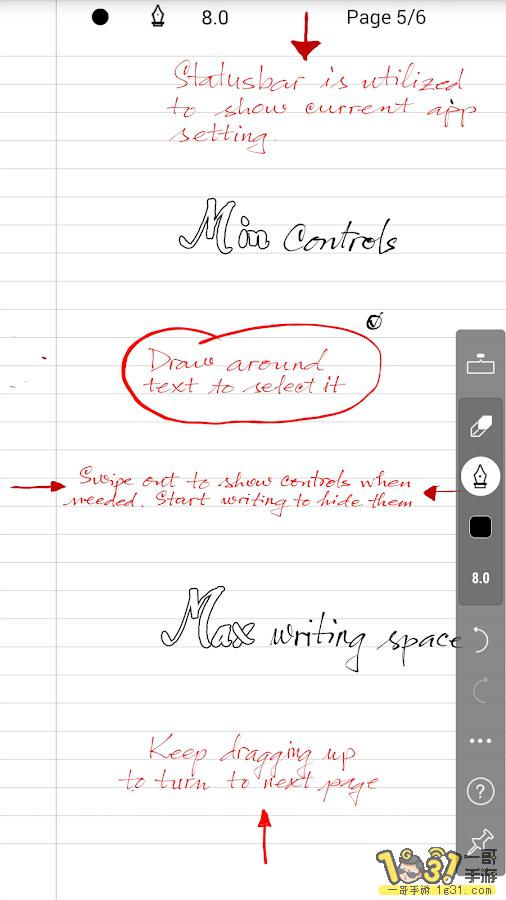 8.0 Page 5/6
Statusbar is utilized
to show current app
setting.
Min Controls
Draw around
text to select it
Swipe out to show controls when
needed. Start writing to hide them
8.0
Max writing space
Keep dragging up
to turn to next page
?
1G31 一哥手游
一哥手游 1g31.com